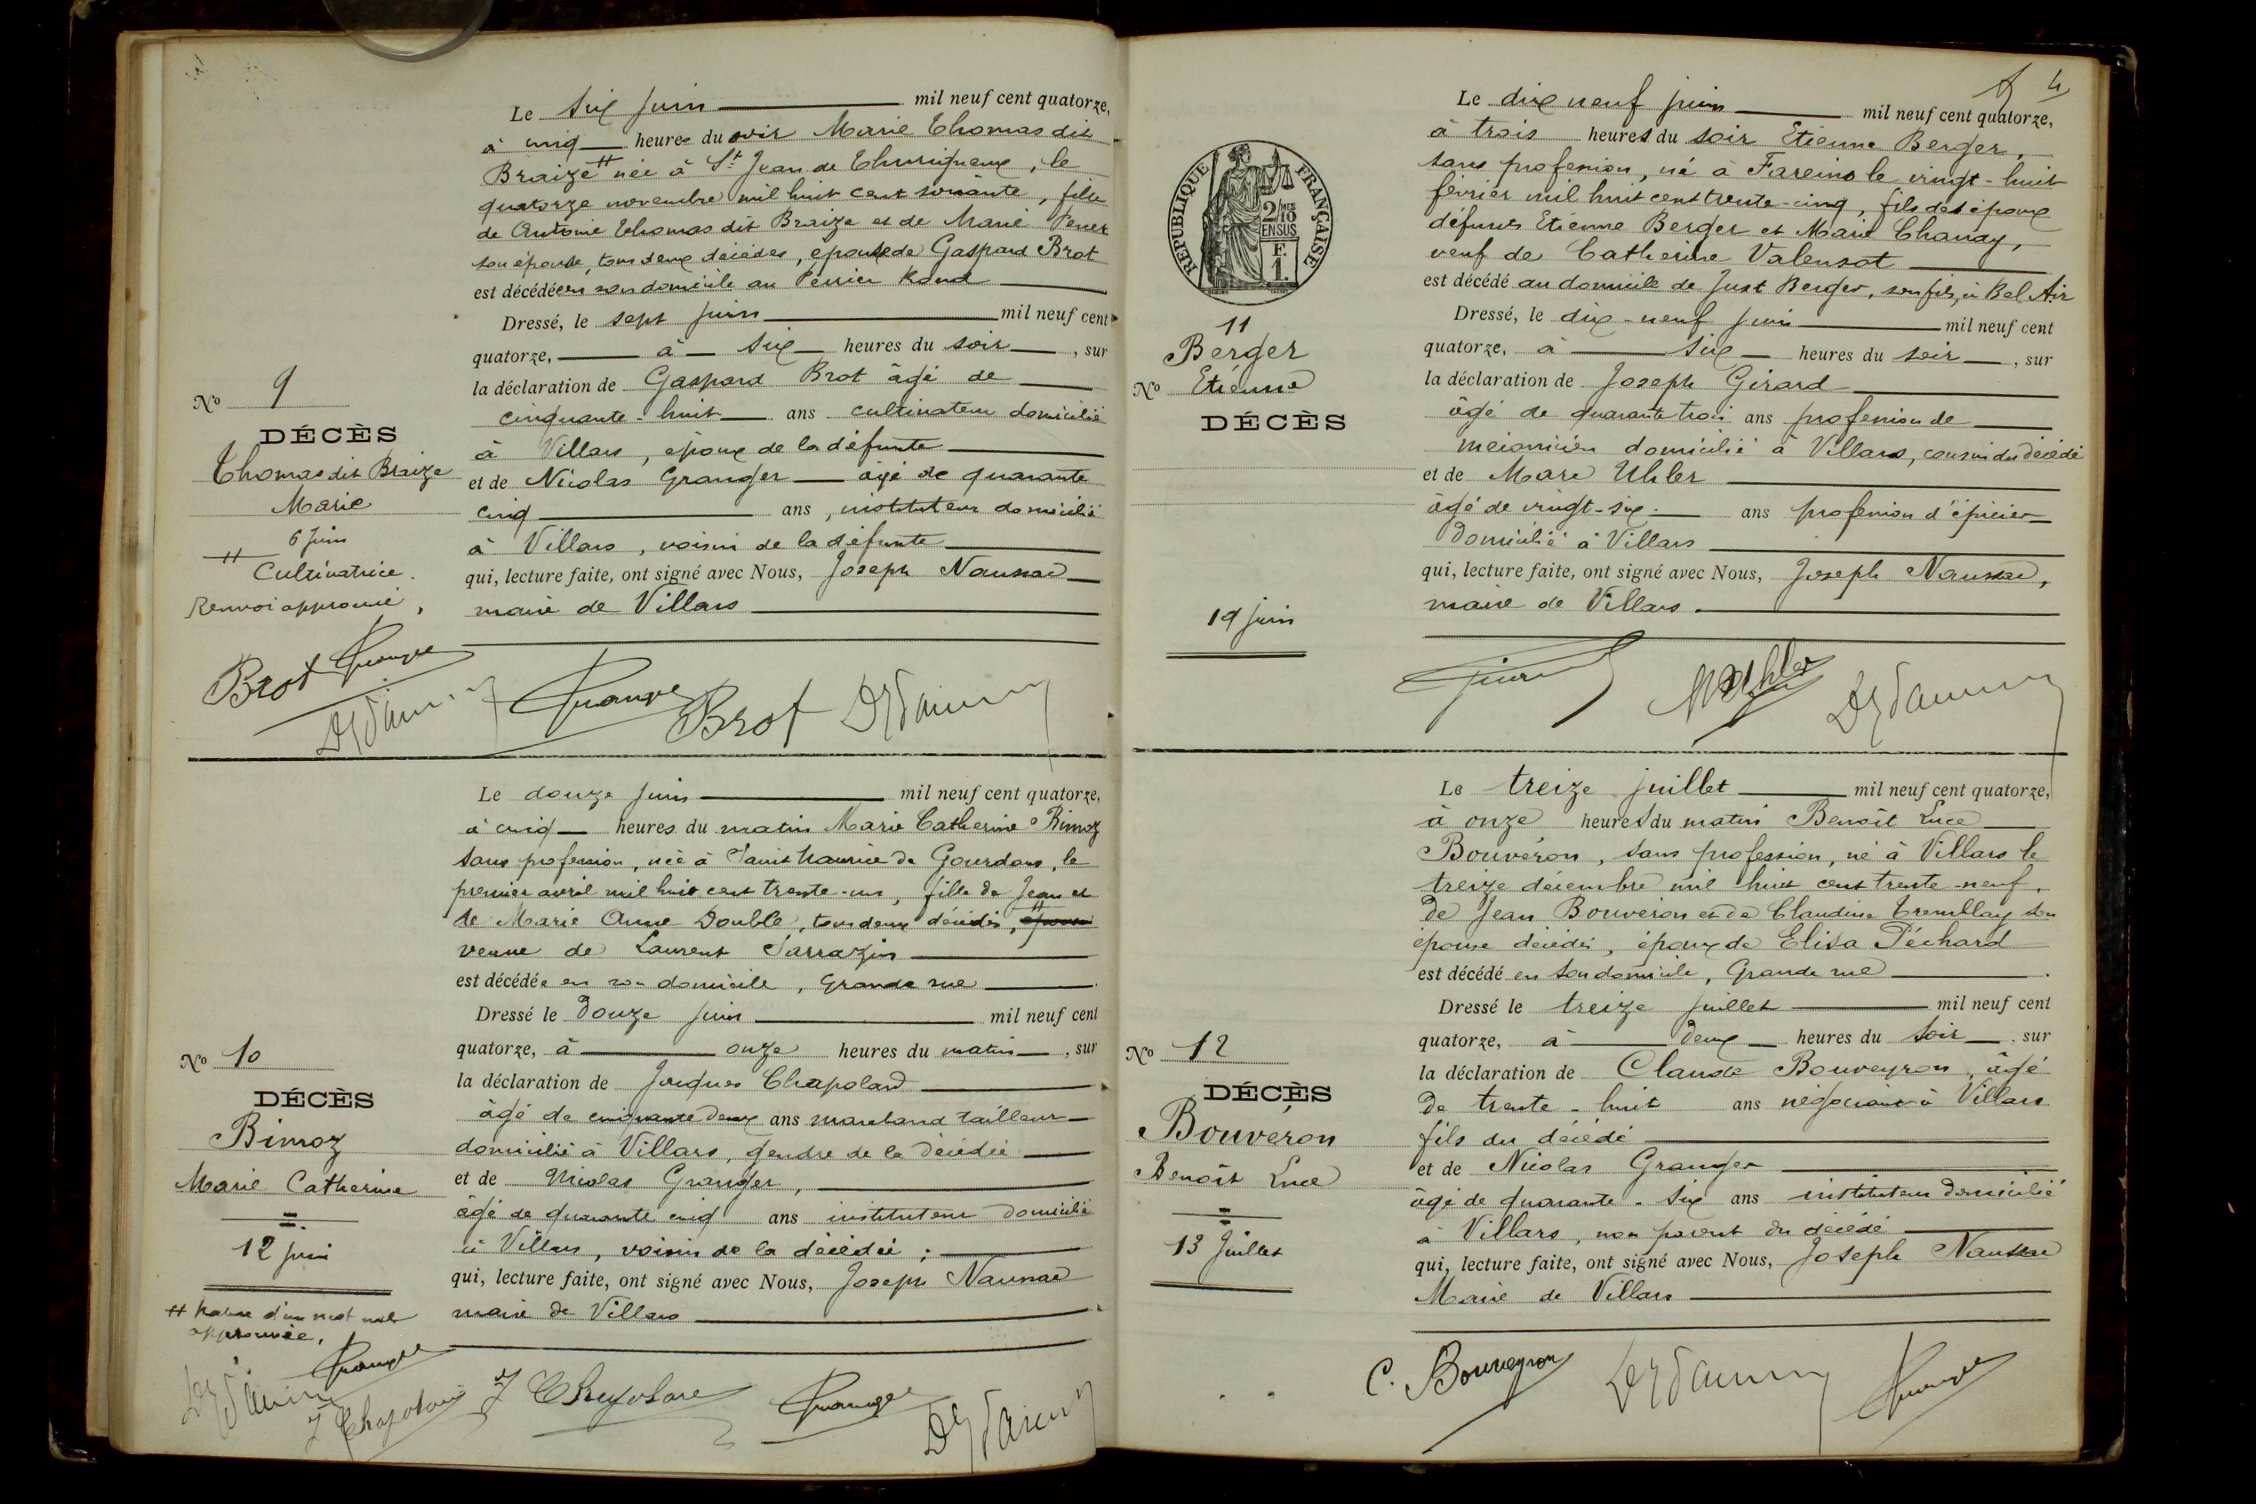 Le six juin mil neuf cent quatorze,
à cinq heures du soir Marie Thomas dit
Braize # née à St Jean de Thurigneux, le
quatorze novembre mil huit cent soixante, fille
de Antoine Thomas dit Braize et de Marie
son épouse, tous deux décédés, épouse de Gaspard Brot
est décédée en son domicile au Perrier Rond
Dressé, le sept juin mil neuf cent
quatorze, à six heures du soir, sur
la déclaration de Gaspard Brot âgé de
cinquante-huit ans cultivateur domicilié
à Villars, époux de la défunte
et de Nicolas Granger âgé de quarante
cinq ans, instituteur domicilié
à Villars, voisin de la défunte
qui, lecture faite, ont signé avec Nous, Joseph
maire de Villars
No 9
DÉCÈS
Thomas dit Braize
Marie
6 juin
# Cultivatrice.
Renvoi approuvé,
Brot Granger
Granger Brot
Le douze juin mil neuf cent quatorze,
à cinq heures du matin Marie Catherine Bimoz
sans profession, née à Saint Maurice de Gourdans, le
premier avril mil huit cent trente-un, fille de Jean et
de Marie Anne Double, tous deux décédés, # époux
veuve de Laurent Sarrazin
est décédée en son domicile, Grande rue
Dressé le douze juin mil neuf cent
quatorze, à onze heures du matin, sur
la déclaration de Jacques Chapoland
âgé de cinquante deux ans marchand tailleur
domicilié à Villars, gendre de la décédée
et de Nicolas Granger,
âgé de quarante cinq ans instituteur domicilié
à Villars, voisin de la décédée;
qui, lecture faite, ont signé avec Nous, Joseph
maire de Villars
No 10
DÉCÈS
Bimoz
Marie Catherine
12 juin
# Rature d'un mot nul
approuvée,
Granger
J Chapoland J Chapoland Granger
4
Le dix neuf juin mil neuf cent quatorze,
à trois heures du soir Etienne Berger,
sans profession, né à Fareins le vingt-huit
février mil huit cent trente-cinq, fils des époux
défunts Etienne Berger et Marie Chanay,
veuf de Catherine Valensot
est décédé au domicile de Just Berger, son fils, à Bel Air
Dressé, le dix-neuf juin mil neuf cent
quatorze, à six heures du soir, sur
la déclaration de Joseph Girard
âgé de quarante trois ans profession de
mécanicien domicilié à Villars, cousin du décédé
et de Marc Uhler
âgé de vingt-six ans profession d'épicier
domicilié à Villars
qui, lecture faite, ont signé avec Nous, Joseph
maire de Villars.
RÉPUBLIQUE FRANÇAISE
2/10 EN SUS
F. 1.
11
Berger
No Etienne
DÉCÈS
19 juin
Girard M Uhler
Le treize juillet mil neuf cent quatorze,
à onze heures du matin Benoît Luce
Bouveron, sans profession, né à Villars le
treize décembre mil huit cent trente-neuf,
de Jean Bouveron et de Claudine Tremblay son
épouse décédés, époux de Elisa Péchard
est décédé en son domicile, Grande rue
Dressé le treize juillet mil neuf cent
quatorze, à deux heures du soir, sur
la déclaration de Claude Bouveyron, âgé
de trente-huit ans négociant à Villars
fils du décédé
et de Nicolas Granger
âgé de quarante-six ans instituteur domicilié
à Villars, non parent du décédé
qui, lecture faite, ont signé avec Nous, Joseph
Maire de Villars
No 12
DÉCÈS
Bouveron
Benoît Luce
13 Juillet
C. Bouveyron Granger